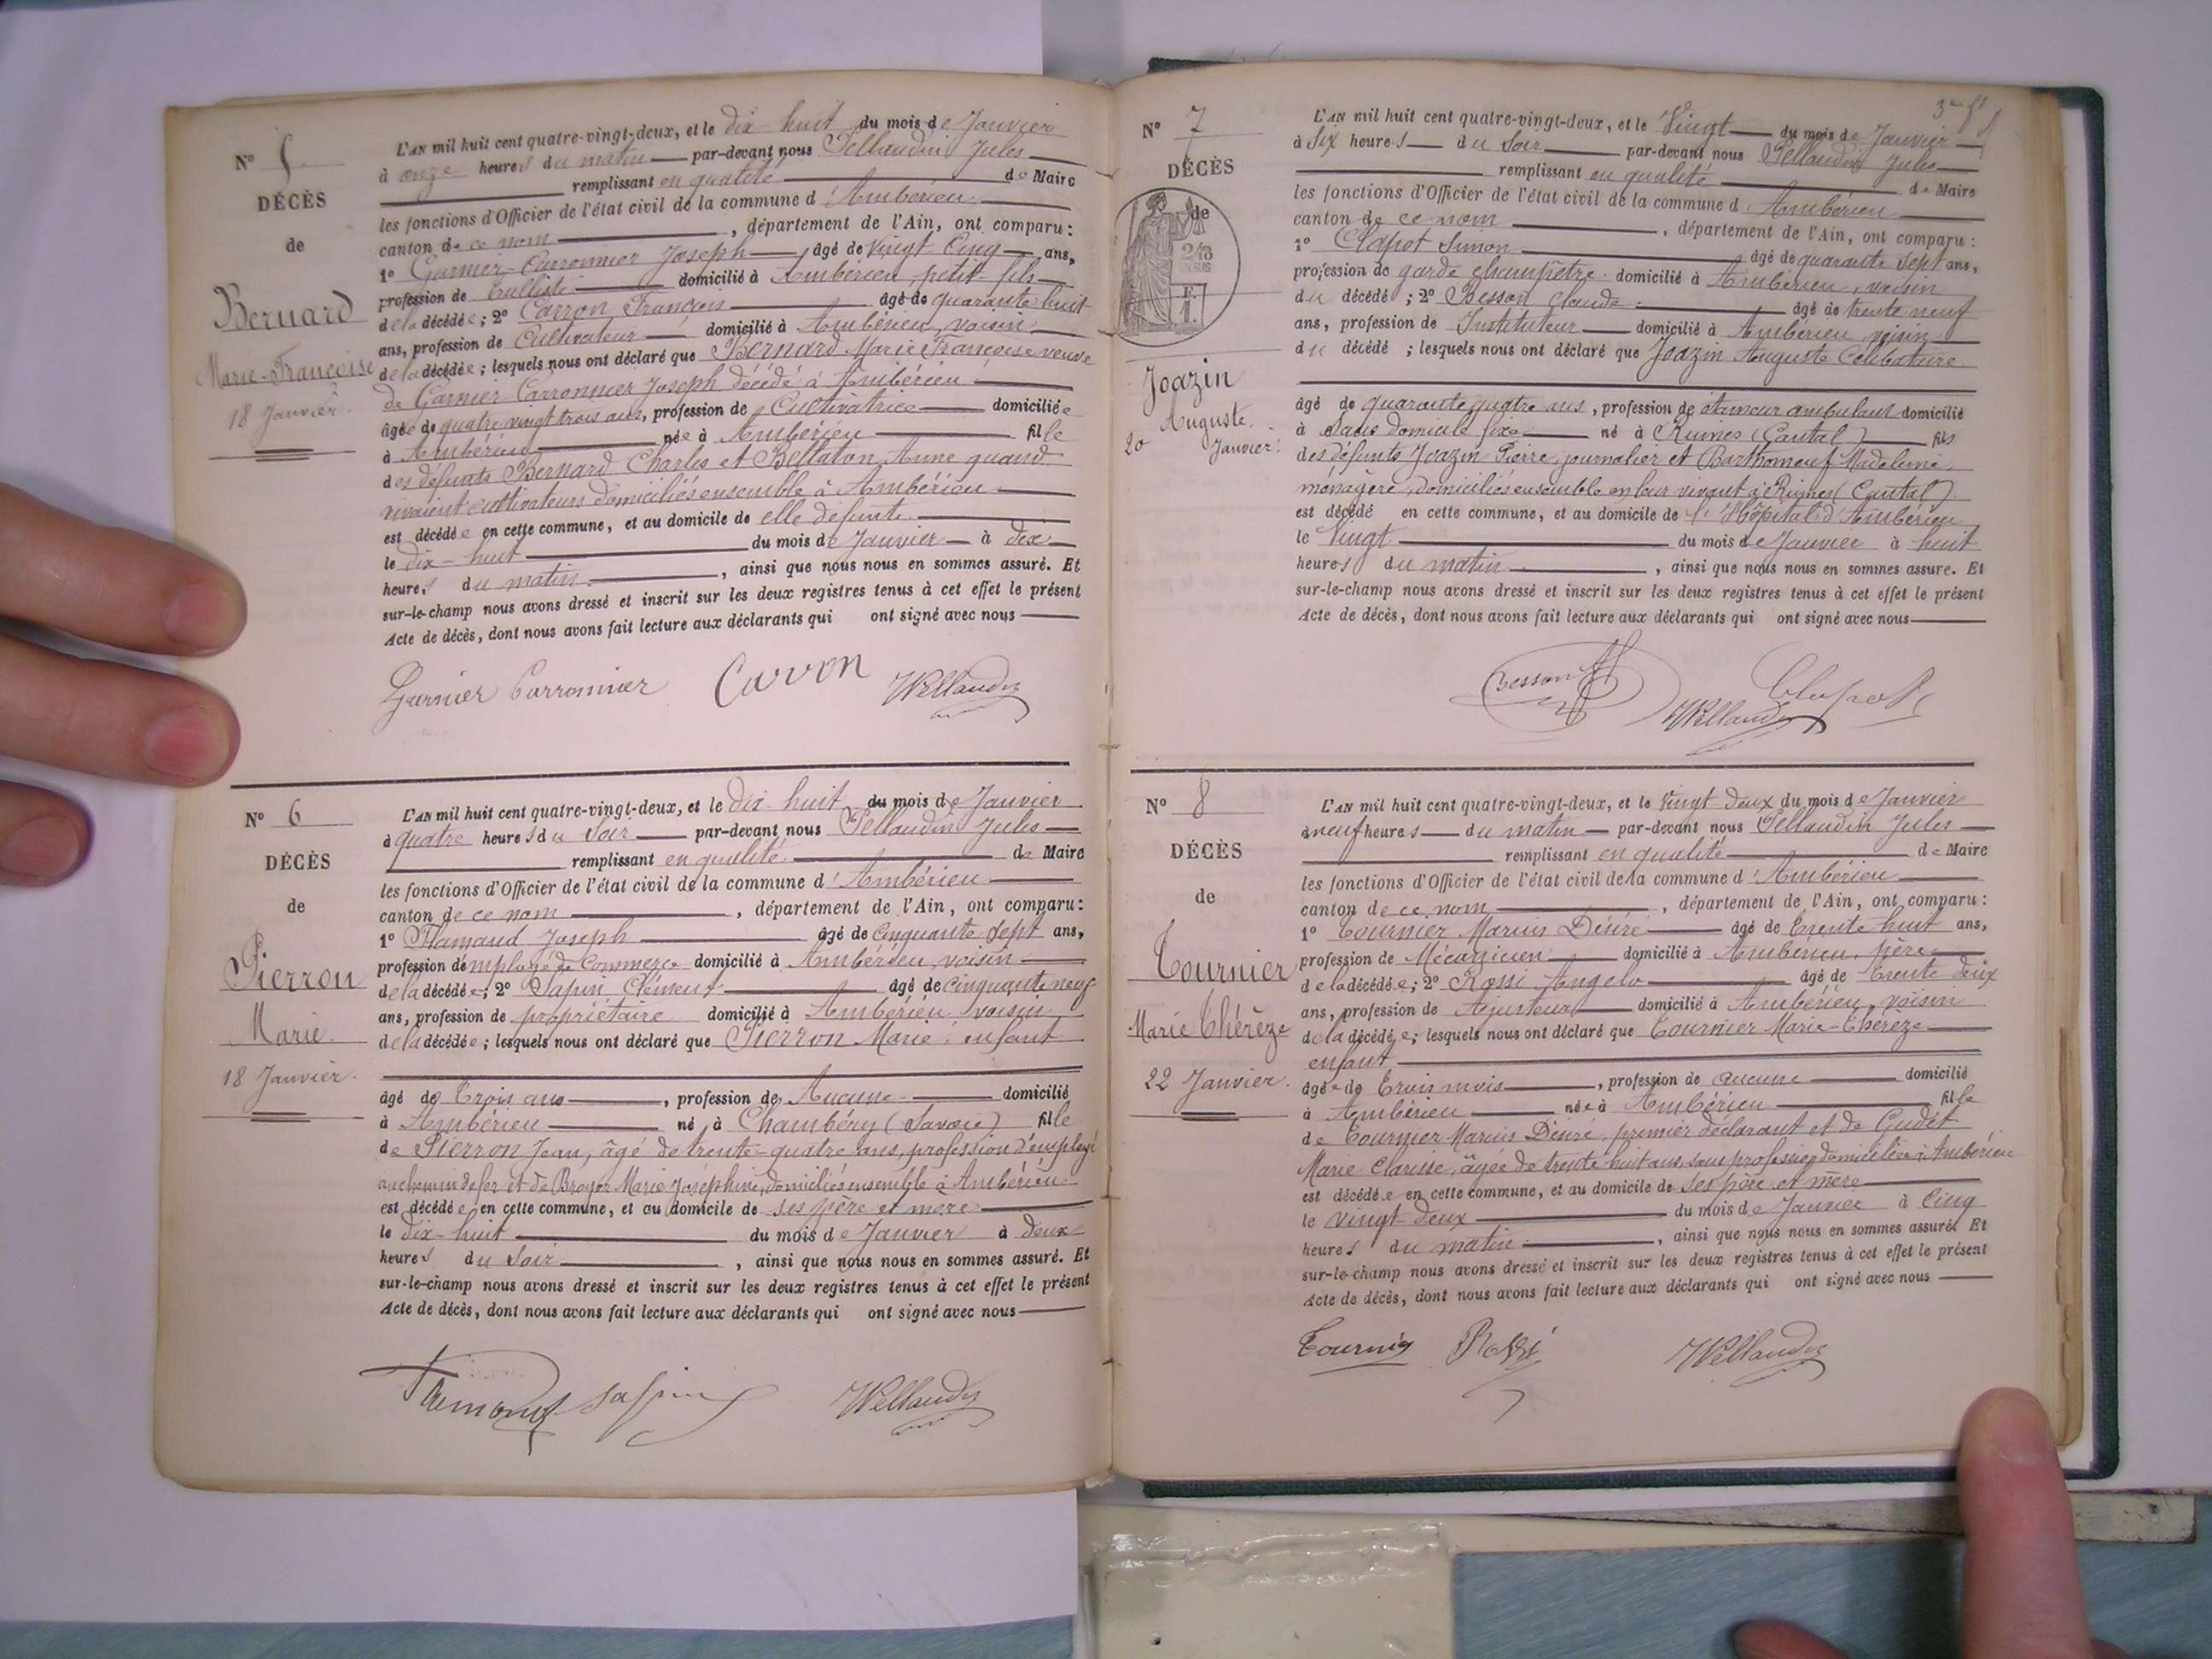 N° 5
DÉCÈS
de
Bernard
Marie-Françoise
18 Janvier.
L'AN mil huit cent quatre-vingt-deux, et le dix-huit du mois de Janvier
à onze heures du matin par-devant nous Pellaudin Jules
remplissant en qualité de Maire
les fonctions d'Officier de l'état civil de la commune d'Ambérieu
canton de ce nom, département de l'Ain, ont comparu :
1° Garnier-Carronnier Joseph âgé de vingt-cinq ans,
profession de domicilié à Ambérieu, petit-fils
de la décédée ; 2° Carron François âgé de quarante huit
ans, profession de Cultivateur domicilié à Ambérieu, voisin
de la décédée ; lesquels nous ont déclaré que Bernard Marie Françoise veuve
de Garnier-Carronnier Joseph décédé à Ambérieu
âgée de quatre vingt trois ans, profession de Cultivatrice domiciliée
à Ambérieu née à Ambérieu fille
des défunts Bernard Charles et Bellaton Anne quand
vivaient cultivateurs domiciliés ensemble à Ambérieu
est décédée en cette commune, et au domicile de elle défunte
le dix-huit du mois de Janvier à dix
heures du matin, ainsi que nous nous en sommes assuré. Et
sur-le-champ nous avons dressé et inscrit sur les deux registres tenus à cet effet le présent
Acte de décès, dont nous avons fait lecture aux déclarants qui ont signé avec nous
Garnier Carronnier Carron Pellaudin
N° 6
DÉCÈS
de
Pierron
Marie
18 Janvier.
L'AN mil huit cent quatre-vingt-deux, et le dix-huit du mois de Janvier
à quatre heures du soir par-devant nous Pellaudin Jules
remplissant en qualité de Maire
les fonctions d'Officier de l'état civil de la commune d'Ambérieu
canton de ce nom, département de l'Ain, ont comparu :
1° Flamand Joseph âgé de cinquante sept ans,
profession d'employé de Commerce domicilié à Ambérieu, voisin
de la décédée ; 2° Sapin Clément âgé de cinquante neuf
ans, profession de propriétaire domicilié à Ambérieu voisin
de la décédée ; lesquels nous ont déclaré que Pierron Marie, enfant
âgé de trois ans, profession de Aucune domicilié
à Ambérieu né à Chambéry (Savoie) fille
de Pierron Jean, âgé de trente-quatre ans, profession d'employé
au chemin de fer et de Broyer Marie Joséphine, domiciliés ensemble à Ambérieu
est décédée en cette commune, et au domicile de ses père et mère
le dix-huit du mois de Janvier à deux
heures du soir, ainsi que nous nous en sommes assuré. Et
sur-le-champ nous avons dressé et inscrit sur les deux registres tenus à cet effet le présent
Acte de décès, dont nous avons fait lecture aux déclarants qui ont signé avec nous
Flamand Sapin Pellaudin
3me ft
N° 7
DÉCÈS
de
Joazin
Auguste
20 Janvier.
L'AN mil huit cent quatre-vingt-deux, et le vingt du mois de Janvier
à six heures du soir par-devant nous Pellaudin Jules
remplissant en qualité de Maire
les fonctions d'Officier de l'état civil de la commune d'Ambérieu
canton de ce nom, département de l'Ain, ont comparu :
1° Clapot Simon âgé de quarante sept ans,
profession de garde champêtre domicilié à Ambérieu, voisin
du décédé ; 2° Besson Claude âgé de trente neuf
ans, profession de Instituteur domicilié à Ambérieu, voisin
du décédé ; lesquels nous ont déclaré que Joazin Auguste Célibataire
âgé de quarante quatre ans, profession de étameur ambulant domicilié
à sans domicile fixe né à Ruines (Cantal) fils
des défunts Joazin Pierre, journalier et Barthomeuf Madeleine,
ménagère, domiciliés ensemble en leur vivant à Ruines (Cantal)
est décédé en cette commune, et au domicile de l'Hôpital d'Ambérieu
le vingt du mois de Janvier à huit
heures du matin, ainsi que nous nous en sommes assuré. Et
sur-le-champ nous avons dressé et inscrit sur les deux registres tenus à cet effet le présent
Acte de décès, dont nous avons fait lecture aux déclarants qui ont signé avec nous
Besson Pellaudin Clapot
N° 8
DÉCÈS
de
Tournier
Marie Thérèze
22 Janvier.
L'AN mil huit cent quatre-vingt-deux, et le vingt-deux du mois de Janvier
à neuf heures du matin par-devant nous Pellaudin Jules
remplissant en qualité de Maire
les fonctions d'Officier de l'état civil de la commune d'Ambérieu
canton de ce nom, département de l'Ain, ont comparu :
1° Tournier Marius Désiré âgé de trente huit ans,
profession de Mécanicien domicilié à Ambérieu, père
de la décédée ; 2° Rossi Angelo âgé de trente deux
ans, profession de Ajusteur domicilié à Ambérieu, voisin
de la décédée ; lesquels nous ont déclaré que Tournier Marie-Thérèze
enfant
âgée de trois mois, profession de aucune domicilié
à Ambérieu née à Ambérieu fille
de Tournier Marius Désiré, premier déclarant et de Gudet
Marie Clarisse, âgée de trente huit ans, sans profession domiciliés à Ambérieu
est décédée en cette commune, et au domicile de ses père et mère
le vingt-deux du mois de Janvier à cinq
heures du matin, ainsi que nous nous en sommes assuré. Et
sur-le-champ nous avons dressé et inscrit sur les deux registres tenus à cet effet le présent
Acte de décès, dont nous avons fait lecture aux déclarants qui ont signé avec nous
Tournier Rossi Pellaudin